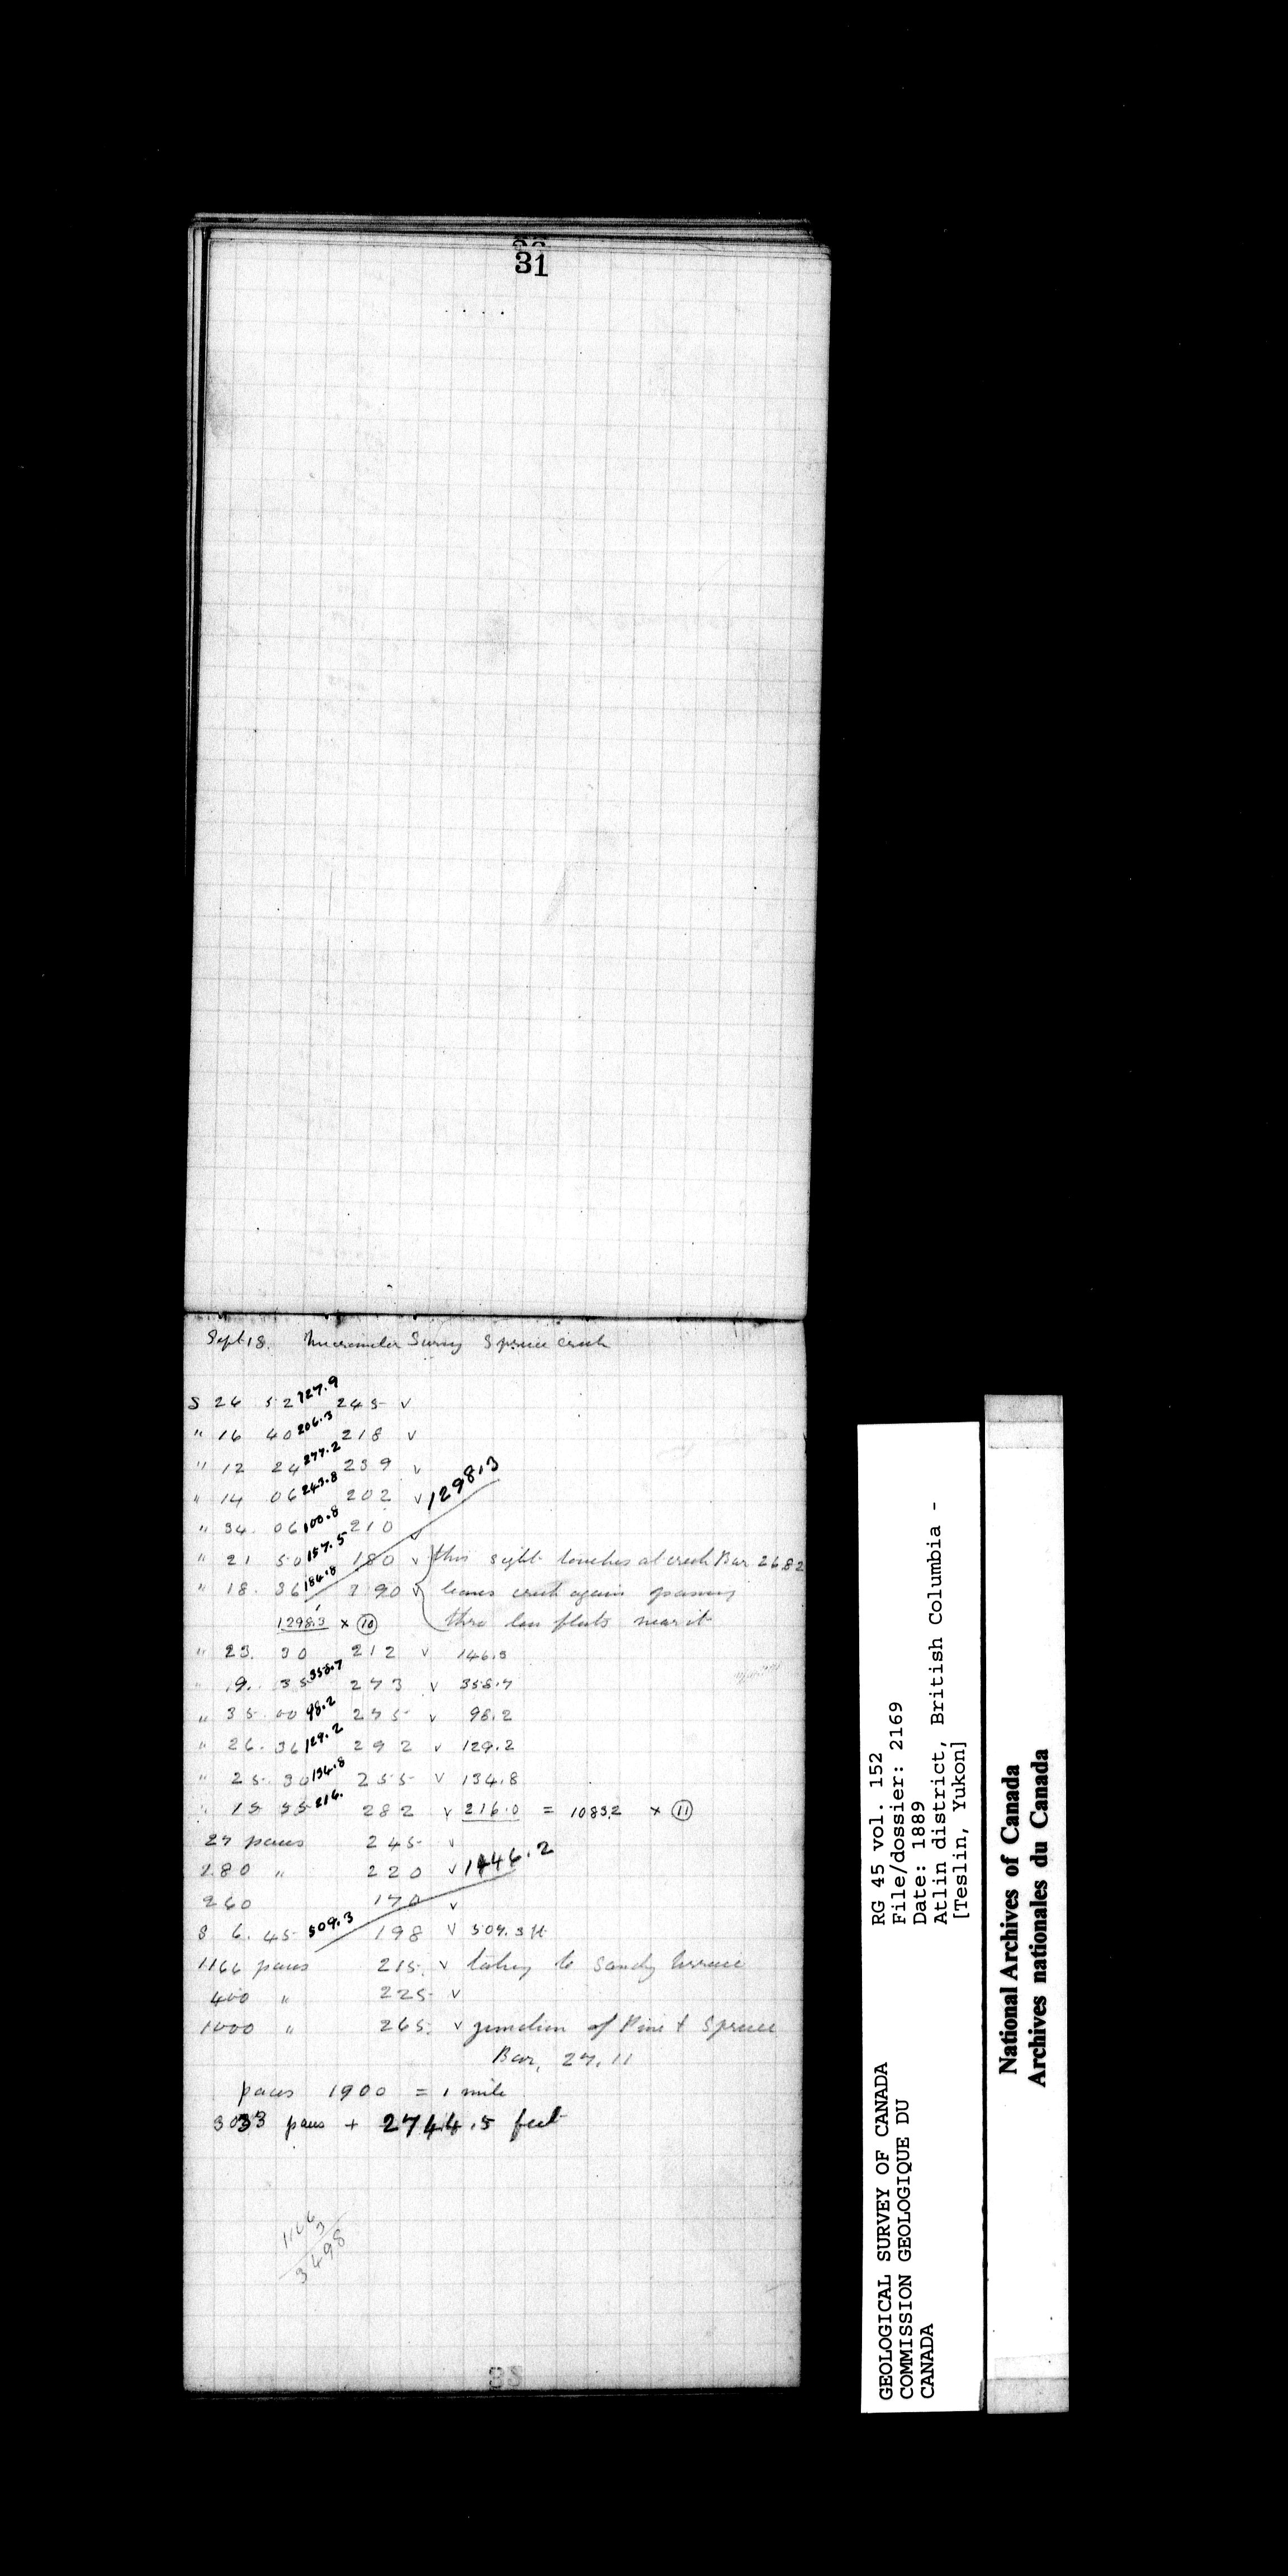 31
Sept 18. Micrometer Survey Spruce Creek
S 26 52 127.9 245 v
" 16 40 206.3 218 v
" 12 24 277.2 239 v
" 14 06 243.8 202 v 1298.3
" 34. 06 100.8 210 v
" 21 50 157.5 180 v this sight touches at creek Bar 26.82
" 18. 36 184.8 290 v leaves creek again passing
1298.3 x 10 thro low flats near it
" 23. 30 212 v 146.3
" 9. 35 358.7 273 v 358.7
" 35 00 98.2 275 v 98.2
" 26. 36 129.2 292 v 129.2
" 25. 30 134.8 255 v 134.8
" 15 55 216. 282 v 216.0 = 1083.2 x 11
27 paces 245 v
280 " 220 v 1446.2
260 170 v
S 6. 45 509.3 198 v 509.3 ft
1166 paces 215. v to Sandy terrace
400 " 225 v
1000 " 265. v junction of Pine & Spruce
Bar. 27.11
paces 1900 = 1 mile
3033 paces + 2744.5 feet
1166
3
3498
32
GEOLOGICAL SURVEY OF CANADA
COMMISSION GEOLOGIQUE DU
CANADA
RG 45 vol. 152
File/dossier: 2169
Date: 1889
Atlin district, British Columbia -
[Teslin, Yukon]
National Archives of Canada
Archives nationales du Canada